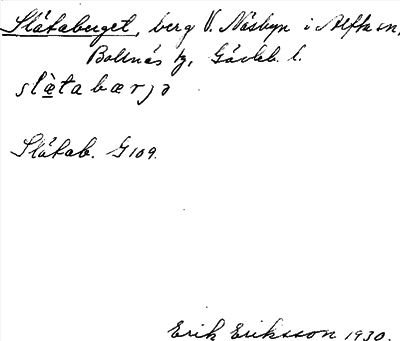 Slåtaberget, berg V. Näsbyn i Alfta sn,
Bollnäs tg, Gävleb. l.
slæ̀tabærjə
Slåtab. G109.
Erik Eriksson 1930.